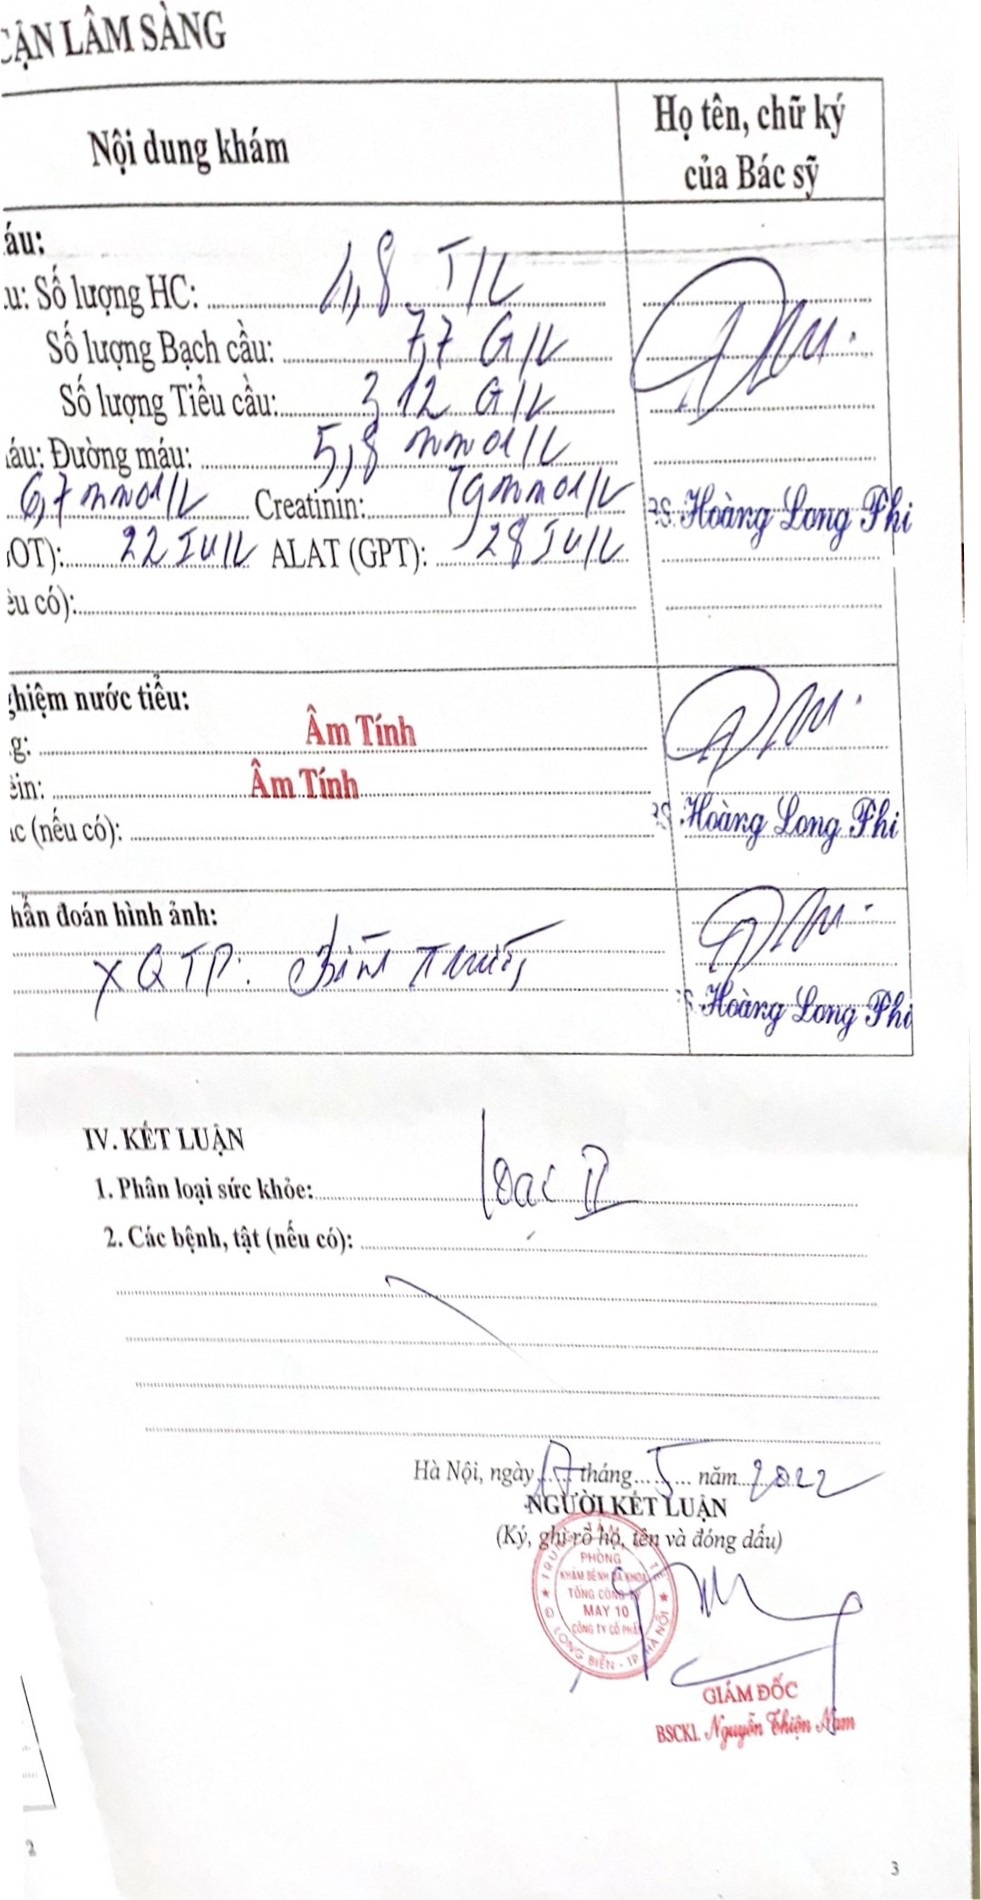 CẬN LÂM SÀNG
Nội dung khám
Họ tên, chữ ký
của Bác sỹ
áu:
u: Số lượng HC: 4,8 T/L
Số lượng Bạch cầu: 7,7 G/L
Số lượng Tiểu cầu: 312 G/L
áu: Đường máu: 5,8 mmol/L
6,7 mmol/L Creatinin: 79 mmol/L
OT): 22 IU/L ALAT (GPT): 28 IU/L
BS. Hoàng Long Phi
ếu có):
ghiệm nước tiểu:
g: Âm Tính
ein: Âm Tính
ác (nếu có):
BS. Hoàng Long Phi
hẩn đoán hình ảnh:
XQTP: Bình Thường
BS. Hoàng Long Phi
IV. KẾT LUẬN
1. Phân loại sức khỏe: Loại II
2. Các bệnh, tật (nếu có):
Hà Nội, ngày 17 tháng 5 năm 2022
NGƯỜI KẾT LUẬN
(Ký, ghi rõ họ, tên và đóng dấu)
PHÒNG
KHÁM BỆNH ĐA KHOA
TỔNG CÔNG TY
MAY 10
CÔNG TY CỔ PHẦN
LONG BIÊN - TP HÀ NỘI
GIÁM ĐỐC
BSCKI. Nguyễn Thiện Nam
2
3